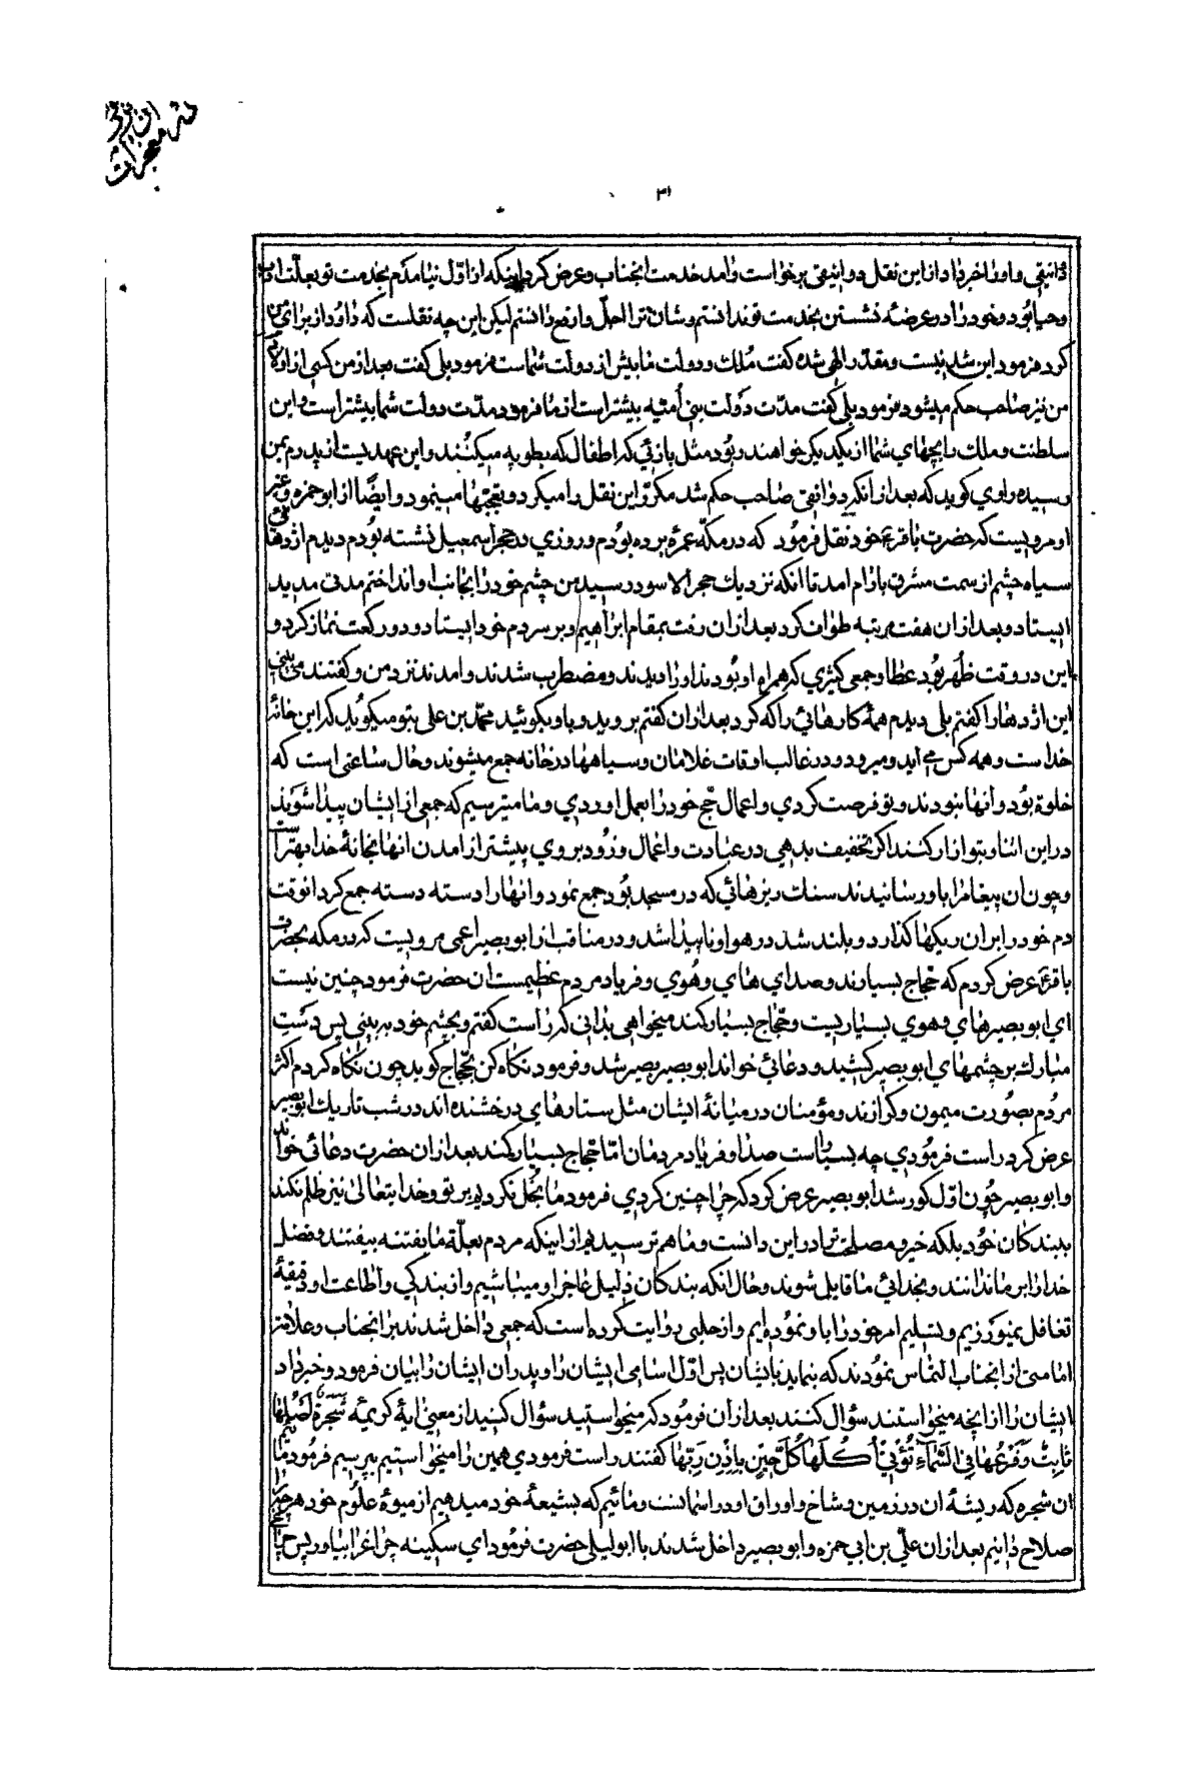 ۳۱
دانیقی و او را خبر داد از این نقل دوانیقی برخواست و امد خدمت انجناب و عرض کرد اینکه از اول نیامدم بخدمت تو بعلت ادب
و حیا بود و خود را در عرضهٔ نشستن بخدمت تو ندانستم و شان ترا اجل و ارفع دانستم لیکن این چه نقلست که داود از برای من
کرد فرمود این شدنیست و مقدر الهی شده گفت ملک و دولت ما پیش از دولت شماست فرمود بلی گفت بعد از من کسی از اولاد
من نیز صاحب حکم میشود فرمود بلی گفت مدّت دولت بنی اُمیّه بیشتر است از ما فرمود مدّت دولت شما بیشتر است و این
سلطنت و ملک را بچهای شما از یکدیگر خواهند ربود مثل بازئی که اطفال که بطوپه میکنند و این عهدیست از پدرم بمن
رسیده راوی گوید که بعد از انکه دوانقی صاحب حکم شد مکرّر این نقل را میکرد و تعجّبها مینمود و ایضًا از ابو حمزه و غیر
او مرویست که حضرت باقر خود نقل فرمود که در مکّه عمره برده بودم و روزی در حجر اسمعیل نشسته بودم دیدم اژدهائی
سیاه چشم از سمت مشرق بازام امد تا انکه نزدیك حجر الاسود رسید من چشم خود را بجانب او انداختم مدتی مدید
ایستاد و بعد از ان هفت مرتبه طواف کرد بعد از ان رفت بمقام ابراهیم و بر سر دم خود ایستاد و دو رکعت نماز کرد و
این در وقت ظهر بود عطا و جمعی کثیری که همراه او بودند او را دیدند و مضطرب شدند و امدند نزد من و گفتند می بینی
این اژدها را گفتم بلی دیدم همهٔ کارهائی را که کرد بعد از ان گفتم بروید و باو بگوئید محمّد بن علی بتو میگوید که این خانهٔ
خداست و همه کس می اید و میرود و در غالب اوقات غلامان و سیاهها در خانه جمع میشوند و حال ساعتی است که
خلوة بود و انها نبودند و تو فرصت کردی و اعمال حج خود را بعمل اوردی و ما میترسیم که جمعی از ایشان پیدا شوند
در این اثنا و بتو ازار کنند اگر تخفیف بدهی در عبادت و اعمال و زود بروی پیشتر از امدن انها بخانهٔ خدا بهتر است
و چون ان پیغام را باو رسانیدند سنك ریزهائی که در مسجد بود جمع نمود و انها را دسته دسته جمع کرد انوقت
دم خود را بر ان ریکها گذارد و بلند شد در هوا و ناپیدا شد و در مناقب از ابو بصیر اعمی مرویست که در مکه بحضرت
باقر عرض کردم که حجاج بسیارند و صدای های و هوی و فریاد مردم عظیمست ان حضرت فرمود چنین نیست
ای ابو بصیر های و هوی بسیاریست و حجاج بسیار کمند میخواهی بدانی که راست گفتم و بچشم خود به بینی پس دست
مبارك بر چشمهای ابو بصیر کشید و دعائی خواند ابو بصیر بصیر شد و فرمود نگاه کن بحجاج گوید چون نگاه کردم اکثر
مردم بصورت میمون و گرازند و مؤمنان در میانهٔ ایشان مثل ستارهای درخشنده اند در شب تاریك ابو بصیر
عرض کرد راست فرمودی چه بسیار است صدا و فریاد مردمان اما حجاج بسیار کمند بعد از ان حضرت دعائی خواند
و ابو بصیر چون اول کور شد ابو بصیر عرض کرد که چرا چنین کردی فرمود ما بخل نکردیم بر تو و خدایتعالی نیز ظلم نکند
ببندکان خود بلکه خیر و مصلحت ترا در این دانست و ما هم ترسیدیم از اینکه مردم بعلّة ما بفتنه بیفتند و فضل
خدا را بر ما ندانند و بخدائی ما قایل شوند و حال انکه بندکان ذلیل عاجز او میباشیم و از بندکی و اطاعت او دقیقهٔ
تغافل نمیورزیم و تسلیم امر خود را باو نموده ایم و از حلبی روایت کرده است که جمعی داخل شدند بر انجناب و علامتر
امامتی از انجناب التماس نمودند که بنماید بایشان پس اول اسامی ایشان را و پدران ایشان را بیان فرمود و خبر داد
ایشان را از انچه میخواستند سؤال کنند بعد از ان فرمود که میخواستید سؤال کنید از معنی ایهٔ کریمه شَجَرَةٍ اَصْلُهَا
ثَابِتٌ وَ فَرْعُهَا فِی السَّمَآءِ تُؤْتِی أُکُلَهَا کُلَّ حِینٍ بِاِذْنِ رَبِّهَا گفتند راست فرمودی همین را میخواستیم بپرسیم فرمود مائیم
ان شجره که ریشهٔ ان در زمین و شاخ و اوراق او در اسمانست و مائیم که بشیعهٔ خود میدهیم از میوهٔ علوم خود هر چه را
صلاح دانیم بعد از ان علی بن ابی حمزه و ابو بصیر داخل شدند با ابو لیلی حضرت فرمود ای سکینه چراغ را بیاور پس